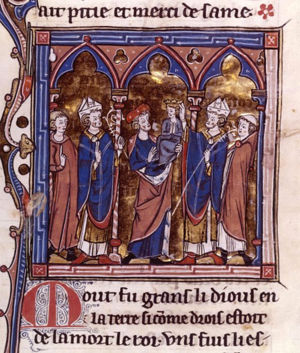 ait pitie et merci de same.
Mout fu grans li dious en
la terre si cõme drois estoit
de la mort le roi. uns fius li es